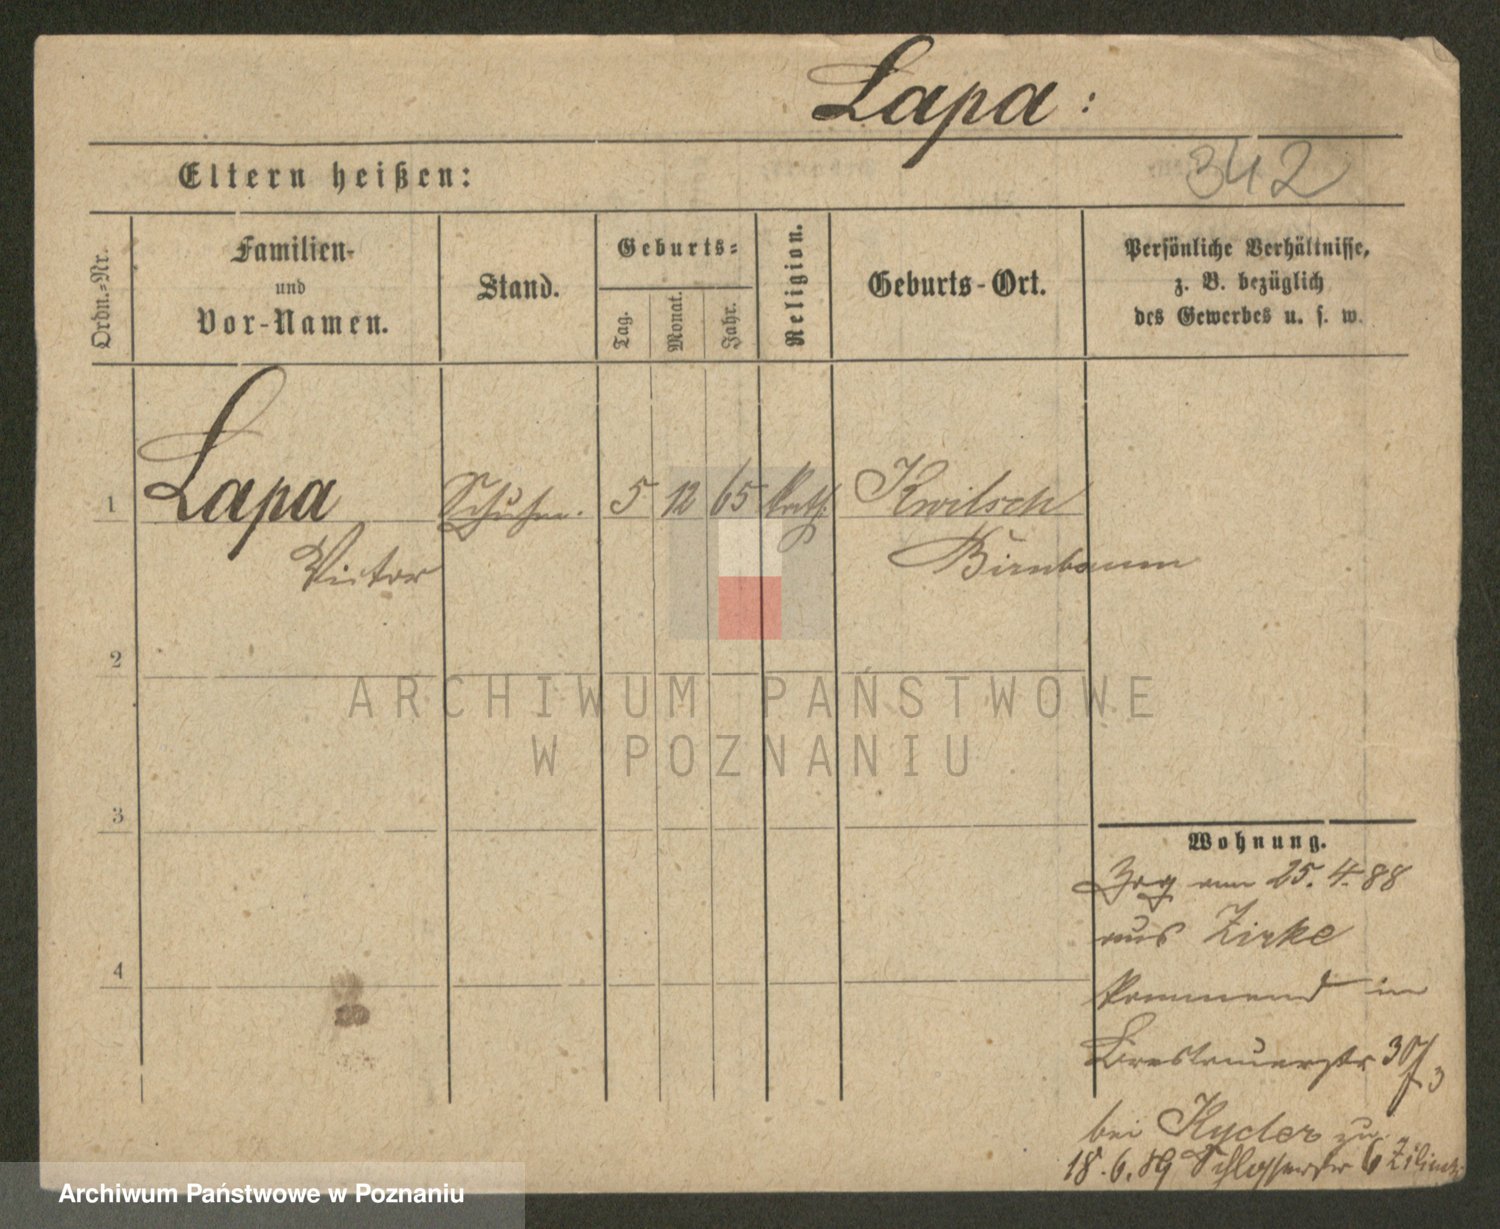 Lapa:
342
Eltern heißen:
Ordn.-Nr.
Familien-
und
Vor-Namen.
Stand.
Geburts-
Tag.
Monat.
Jahr.
Religion.
Geburts-Ort.
Persönliche Verhältnisse,
z. B. bezüglich
des Gewerbes u. s. w.
1 Lapa Schuhm. 5 12 65 kath. Kwilsch
Victor Birnbaum
2
ARCHIWUM PAŃSTWOWE
W POZNANIU
3
Wohnung.
Zzg am 25.4.88
aus Zirke
4
kommend in
Breslauerstr 30/3
bei Kycler zu
18.6.89 Schlosserstr 6
Archiwum Państwowe w Poznaniu